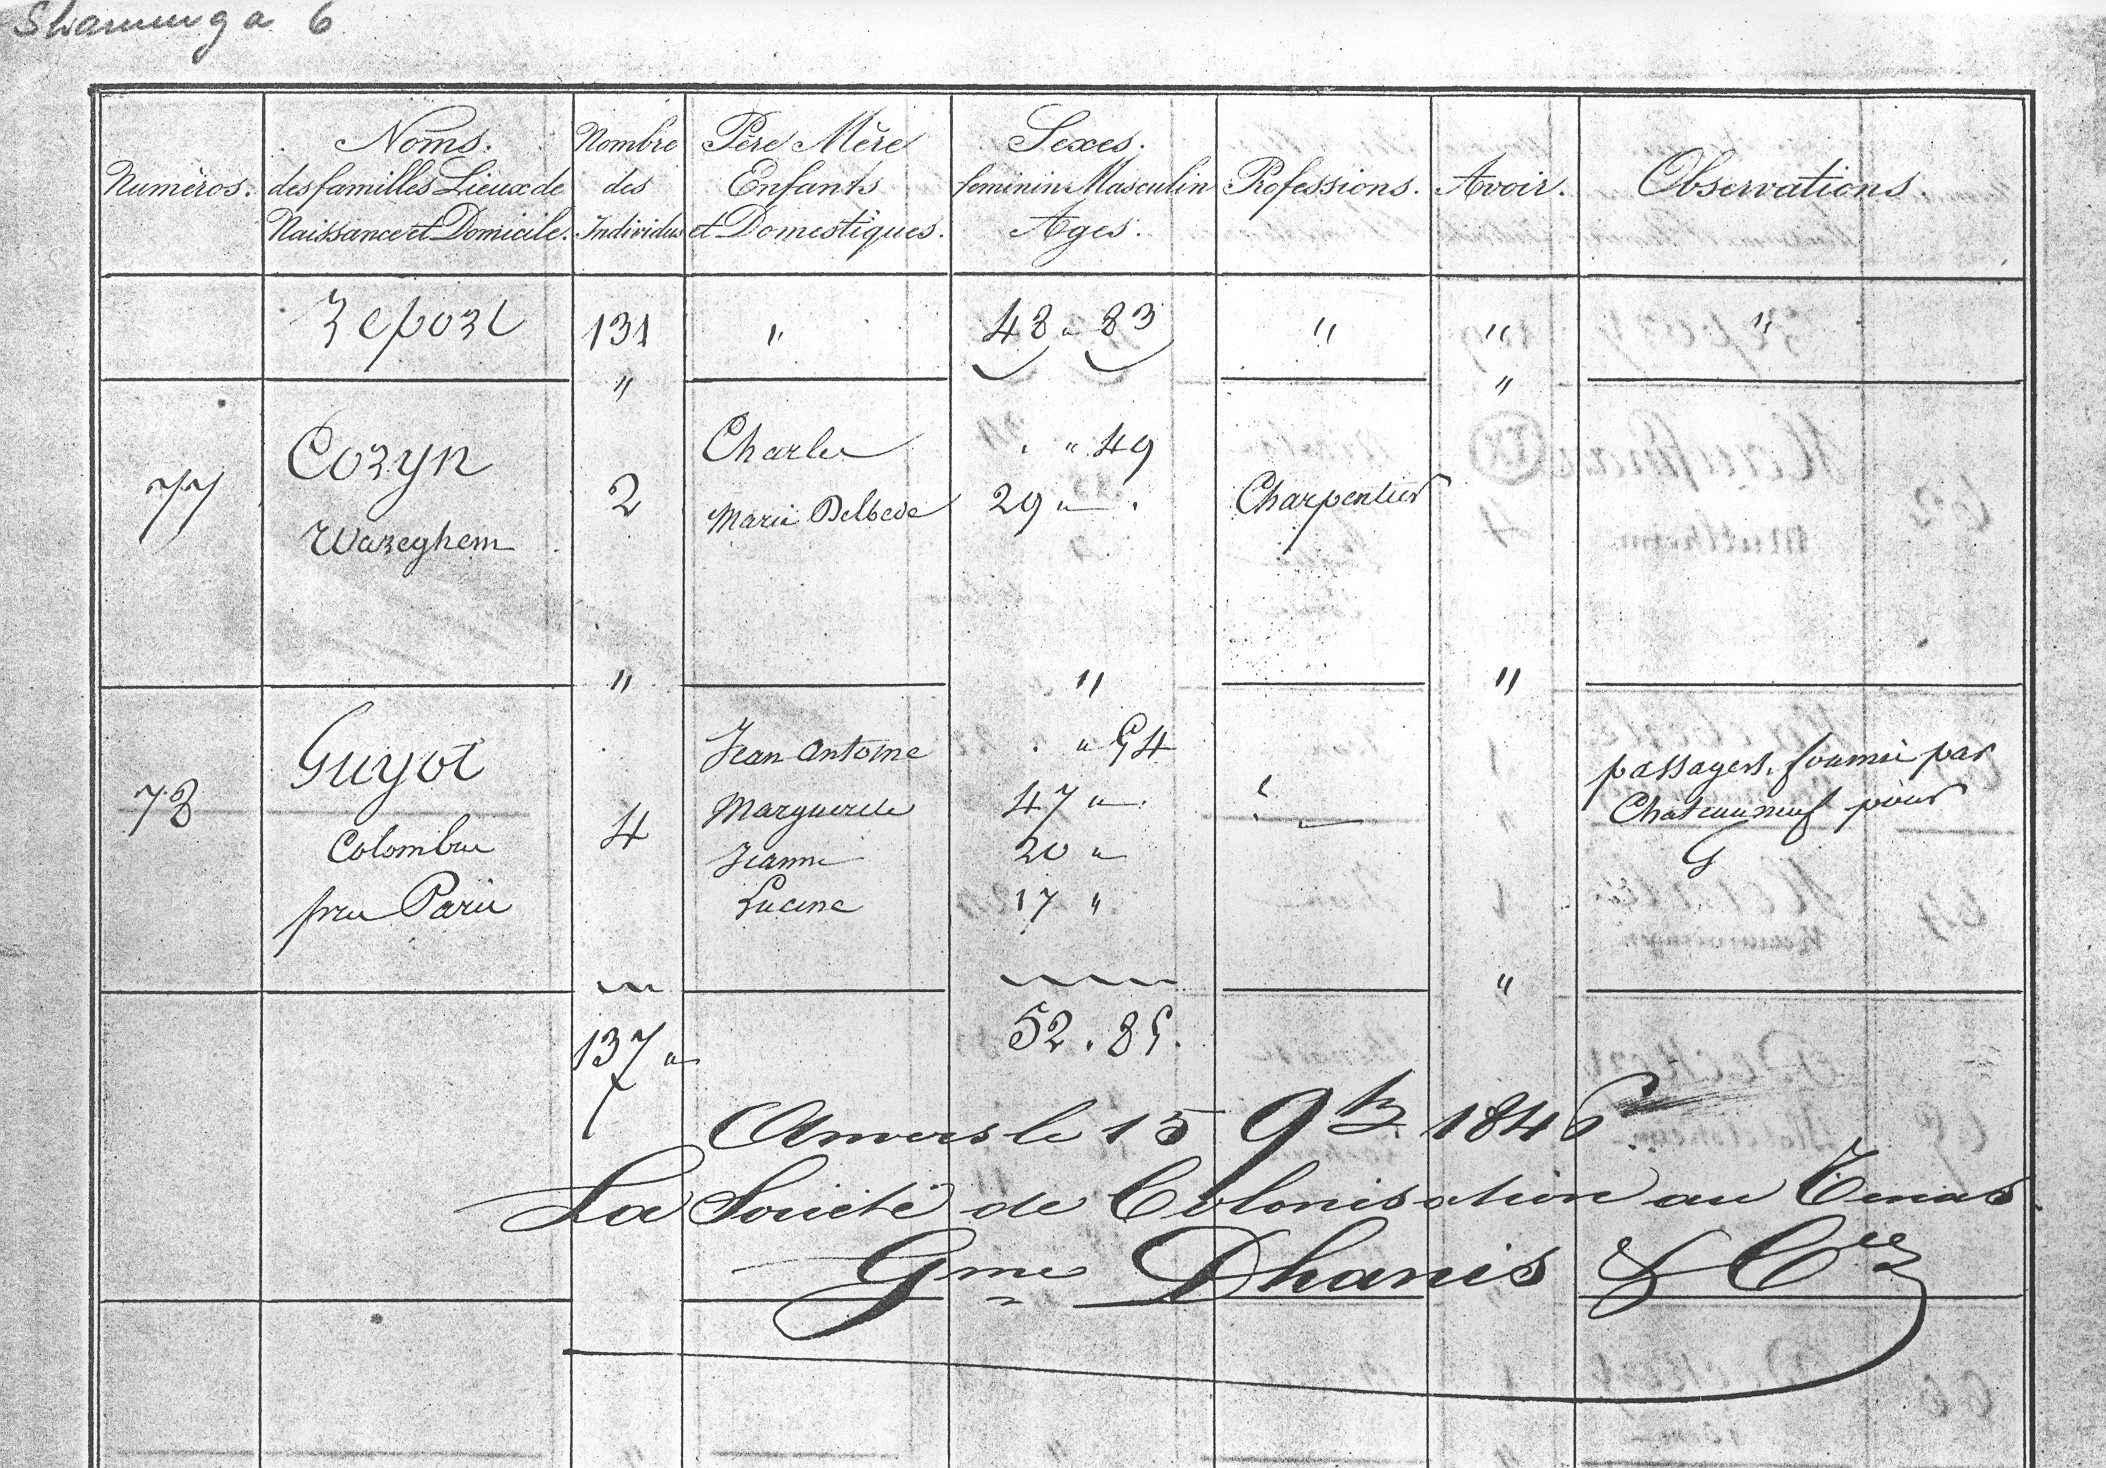 Shanunga 6
Numéros.
Noms.
des familles Lieux de
Naissance et Domicile.
Nombre
des
Individus
Père Mère
Enfants
et Domestiques.
Sexes.
feminin Masculin
Ages.
Professions.
Avoir.
Observations
Report 131 " 48 " 83 " " "
" "
77
Cozyn
Wareghem
2
Charles " 49
Marie Delbecke 29 "
Charpentier
" " "
78
Guyot
Colombes
près Paris
4
Jean Antoine " 54
Marguerite 47 "
Jeanne 20 "
Lucine 17 "
passagers fournis par
Chateauneuf pour
G
"
137 " 52 . 85.
Anvers le 15 9bre 1846
La Société de Colonisation au Texas
Gme Dhanis & Cie